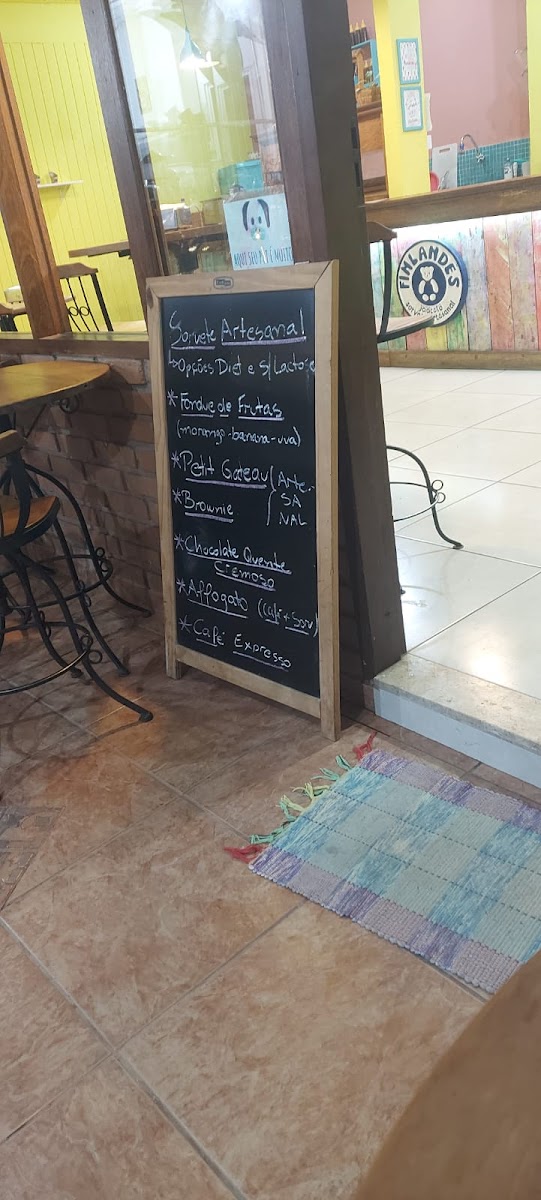 AQUI SEU PET É MUITO
FINLANDES
Sorvete Artesanal
↳Opções Diet e S/ Lactose
*Fondue de Frutas
(morango-banana-uva)
*Petit Gateau
*Brownie
Arte-
SA
NAL
*Chocolate Quente
Cremoso
*Affogato (café + Sorv)
*Café Expresso